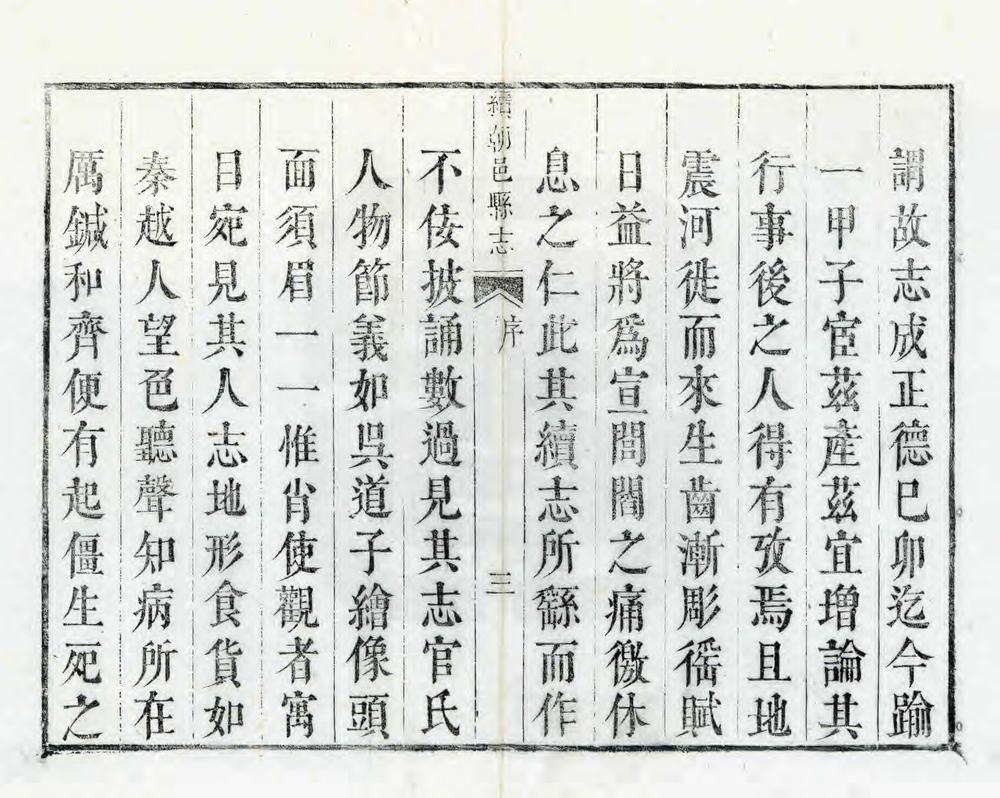 謂故志成正德己卯迄今踰
一甲子宦茲產茲宜增論其
行事後之人得有攷焉且地
震河徙而來生齒漸彫徭賦
日益將為宣閭閻之痛徼休
息之仁此其續志所繇而作
續朝邑縣志
序
三
不佞披誦數過見其志官氏
人物節義如吳道子繪像頭
面須眉一一惟肖使觀者寓
目宛見其人志地形食貨如
秦越人望色聽聲知病所在
厲鍼和齊便有起僵生死之